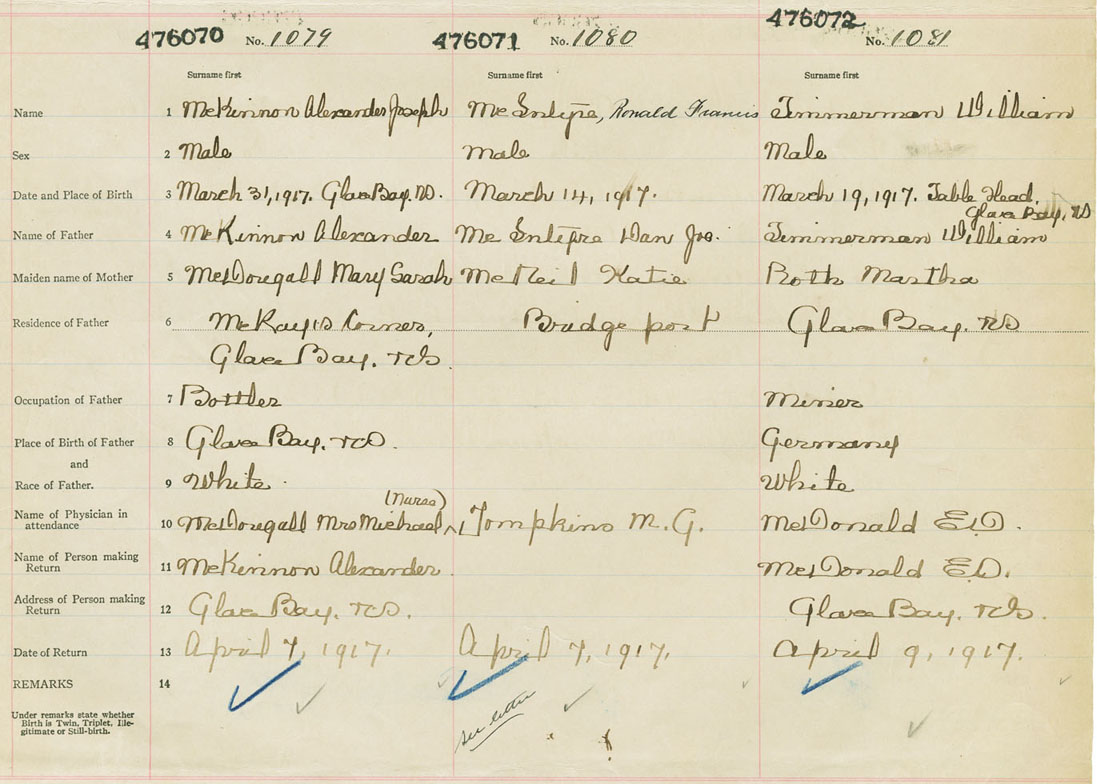 476070 No. 1079 476071 No. 1080 476072 No. 1081
Surname first Surname first Surname first
Name 1 McKinnon Alexander Joseph McIntyre, Ronald Francis Timmerman William
Sex 2 Male Male Male
Date and Place of Birth 3 March 31, 1917. Glace Bay. N.S. March 14, 1917. March 19, 1917. Table Head,
Glace Bay, NS
Name of Father 4 McKinnon Alexander McIntyre Dan Jos. Timmerman William
Maiden name of Mother 5 McDougall Mary Sarah McNeil Katie Roth Martha
Residence of Father 6 McKay's Corner, Bridgeport Glace Bay. NS
Glace Bay. N.S.
Occupation of Father 7 Bottler Miner
Place of Birth of Father 8 Glace Bay. N.S. Germany
and
Race of Father. 9 White White
(Nurse)
Name of Physician in attendance 10 McDougall Mrs Michael Tompkins M. G. McDonald E.D.
Name of Person making Return 11 McKinnon Alexander McDonald E.D.
Address of Person making Return 12 Glace Bay. N.S. Glace Bay. N.S.
Date of Return 13 April 7, 1917. April 7, 1917. April 9, 1917.
REMARKS 14
Under remarks state whether
Birth is Twin, Triplet, Ille-
gitimate or Still-birth.
see letter